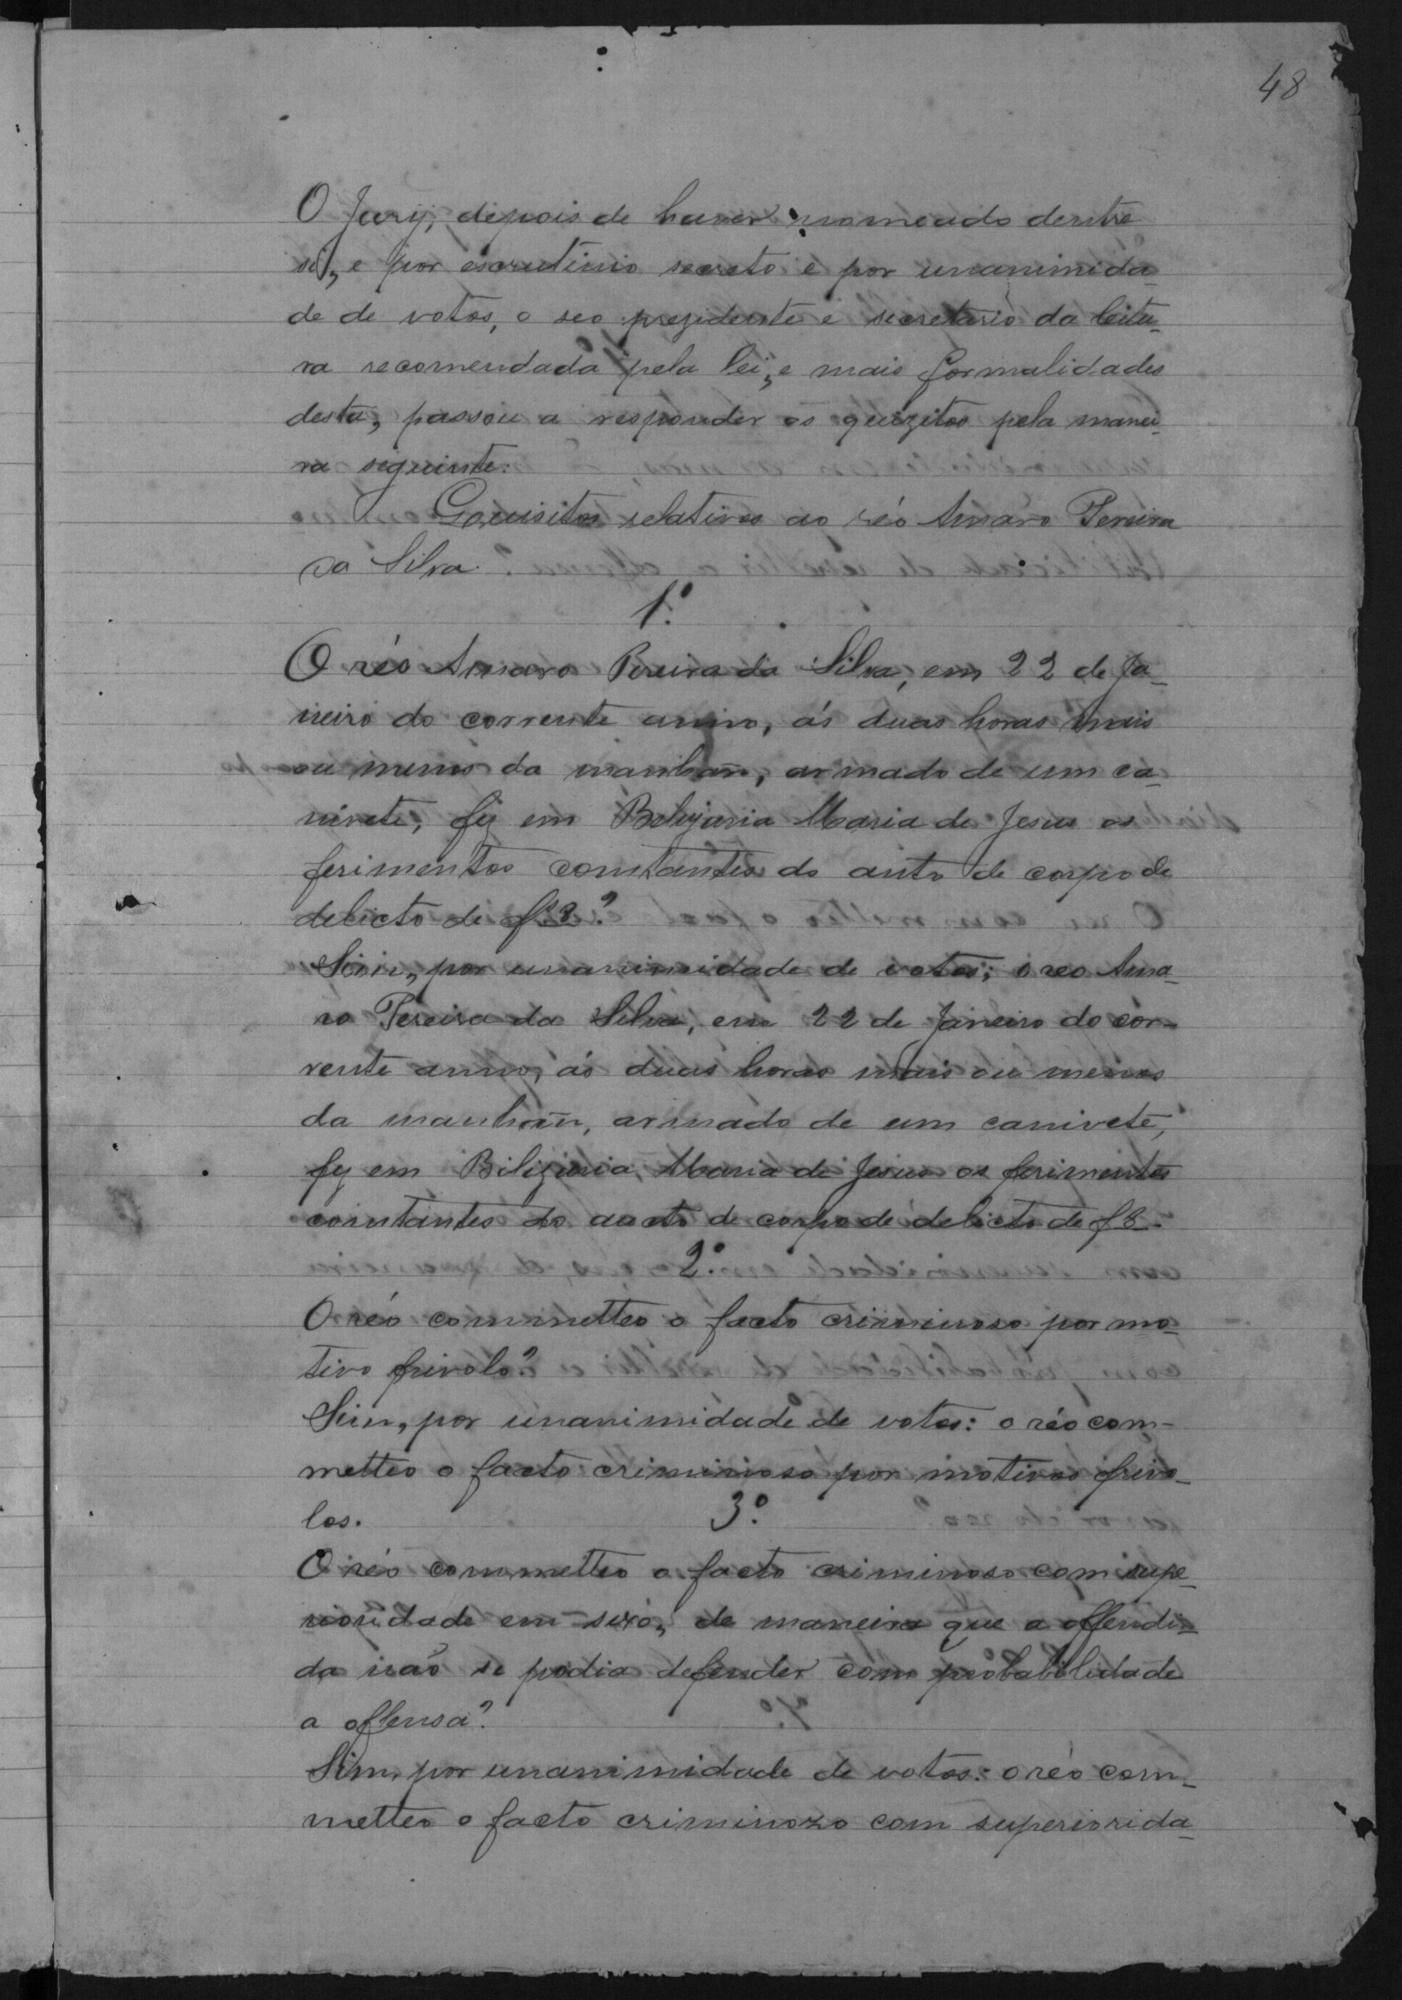 48
O Jury, depois de haver nomeado dentre
si, e por escrutinio secreto e por unanimida-
de de votos, o seo prezidente e secretario da leitu-
ra recomendada pela lei, e mais formalidades
desta, passou a responder os quizitos pela manei-
ra seguinte:
Quisitos relativos ao réo Amaro Pereira
da Silva.
1.º
O réo Amaro Pereira da Silva, em 22 de Ja-
neiro do corrente anno, ás duas horas mais
ou menos da manhan, armado de um ca-
nivete, fez em Belizaria Maria de Jesus os
ferimentos constantes do auto de corpo de
delicto de f 8?
Sim, por unanimidade de votos; o reo Ama-
ro Pereira da Silva, em 22 de Janeiro do cor-
rente anno, ás duas horas mais ou menos
da manhan, armado de um canivete,
fez em Bilizaria Maria de Jesus os ferimentos
constantes do aucto de corpo de delicto de f 8.
2.º
O réo commetteo o facto criminoso por mo-
tivo frivolo?
Sim, por unanimidade de votos: o réo com-
metteo o facto criminioso por motivos frivo-
los.
3.º
O réo commetteo o facto criminoso com supe-
rioridade em sexo, de maneira que a offendi-
da não se podia defender com probabilidade
a offensa?
Sim, por unanimidade de votos: o réo com-
metteo o facto criminozo com superiorida-